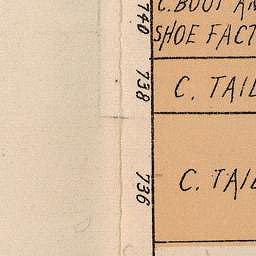 740
C. BOOT AN
SHOE FACT
738
C. TAIL
736
C. TAIL